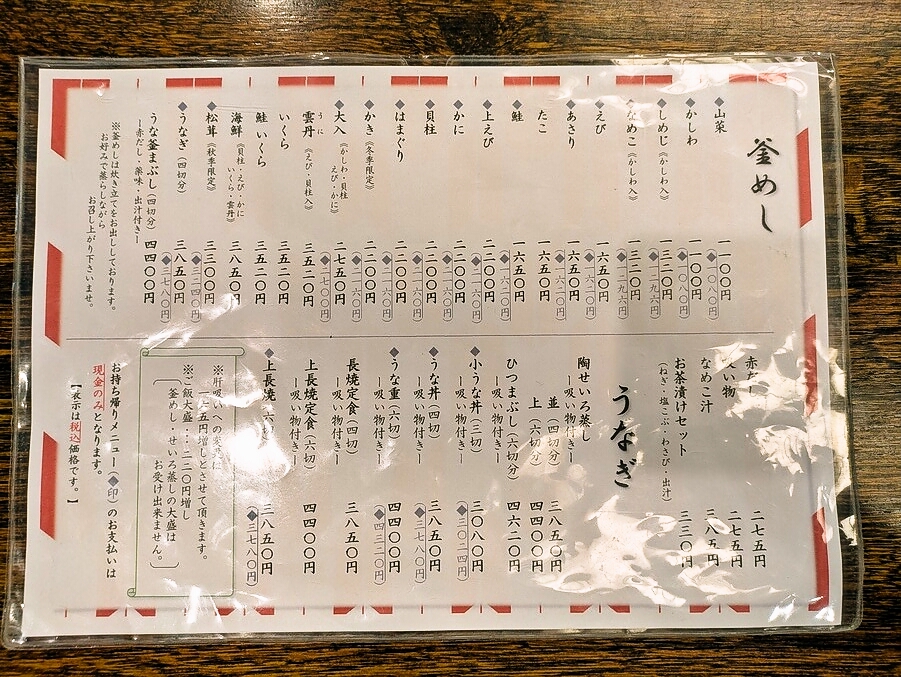 釜めし
◆山菜 一一〇〇円
(◆一〇八〇円)
◆かしわ 一一〇〇円
(◆一〇八〇円)
◆しめじ《かしわ入》 一三二〇円
(◆一二九六円)
◆なめこ《かしわ入》 一三二〇円
(◆一二九六円)
◆えび 一六五〇円
(◆一六二〇円)
◆あさり 一六五〇円
(◆一六二〇円)
たこ 一六五〇円
鮭 一六五〇円
◆上えび 二二〇〇円
(◆二一六〇円)
◆かに 二二〇〇円
(◆二一六〇円)
◆貝柱 二二〇〇円
(◆二一六〇円)
◆はまぐり 二二〇〇円
(◆二一六〇円)
◆かき《冬季限定》 二二〇〇円
(◆二一六〇円)
◆大入《かしわ・貝柱 えび・かに》 二七五〇円
(◆二七〇〇円)
雲丹《えび・貝柱入》 三五二〇円
うに
いくら 三五二〇円
鮭いくら 三五二〇円
海鮮《貝柱・えび・かに いくら・雲丹》 三八五〇円
◆松茸《秋季限定》 三三〇〇円
(◆三二四〇円)
◆うなぎ(四切分) 三八五〇円
(◆三七八〇円)
うな釜まぶし(四切分) 四四〇〇円
ー赤だし・薬味・出汁付きー
※釜めしは炊き立てをお出ししております。
お好みで蒸らしながら
お召し上がり下さいませ。
二七五円
吸い物 二七五円
なめこ汁 三八五円
お茶漬けセット 三三〇円
(ねぎ・塩こぶ・わさび・出汁)
うなぎ
陶せいろ蒸し
ー吸い物付きー
並(四切分) 三八五〇円
上(六切分) 四四〇〇円
ひつまぶし(六切分) 四六二〇円
◆小うな丼(三切) 三〇八〇円
ー吸い物付きー (◆三〇二四円)
◆うな丼(四切) 三八五〇円
ー吸い物付きー (◆三七八〇円)
◆うな重(六切) 四四〇〇円
ー吸い物付きー (◆四三二〇円)
長焼定食(四切) 三八五〇円
ー吸い物付きー
上長焼定食(六切) 四四〇〇円
ー吸い物付きー
◆上長焼(六切) 三八五〇円
(◆三七八〇円)
※肝吸いへの変更は
一六五円増しとさせて頂きます。
※ご飯大盛・・・二二〇円増し
釜めし・せいろ蒸しの大盛は
お受け出来ません。
お持ち帰りメニュー(◆印)のお支払いは
現金のみとなります。
【表示は税込価格です。】